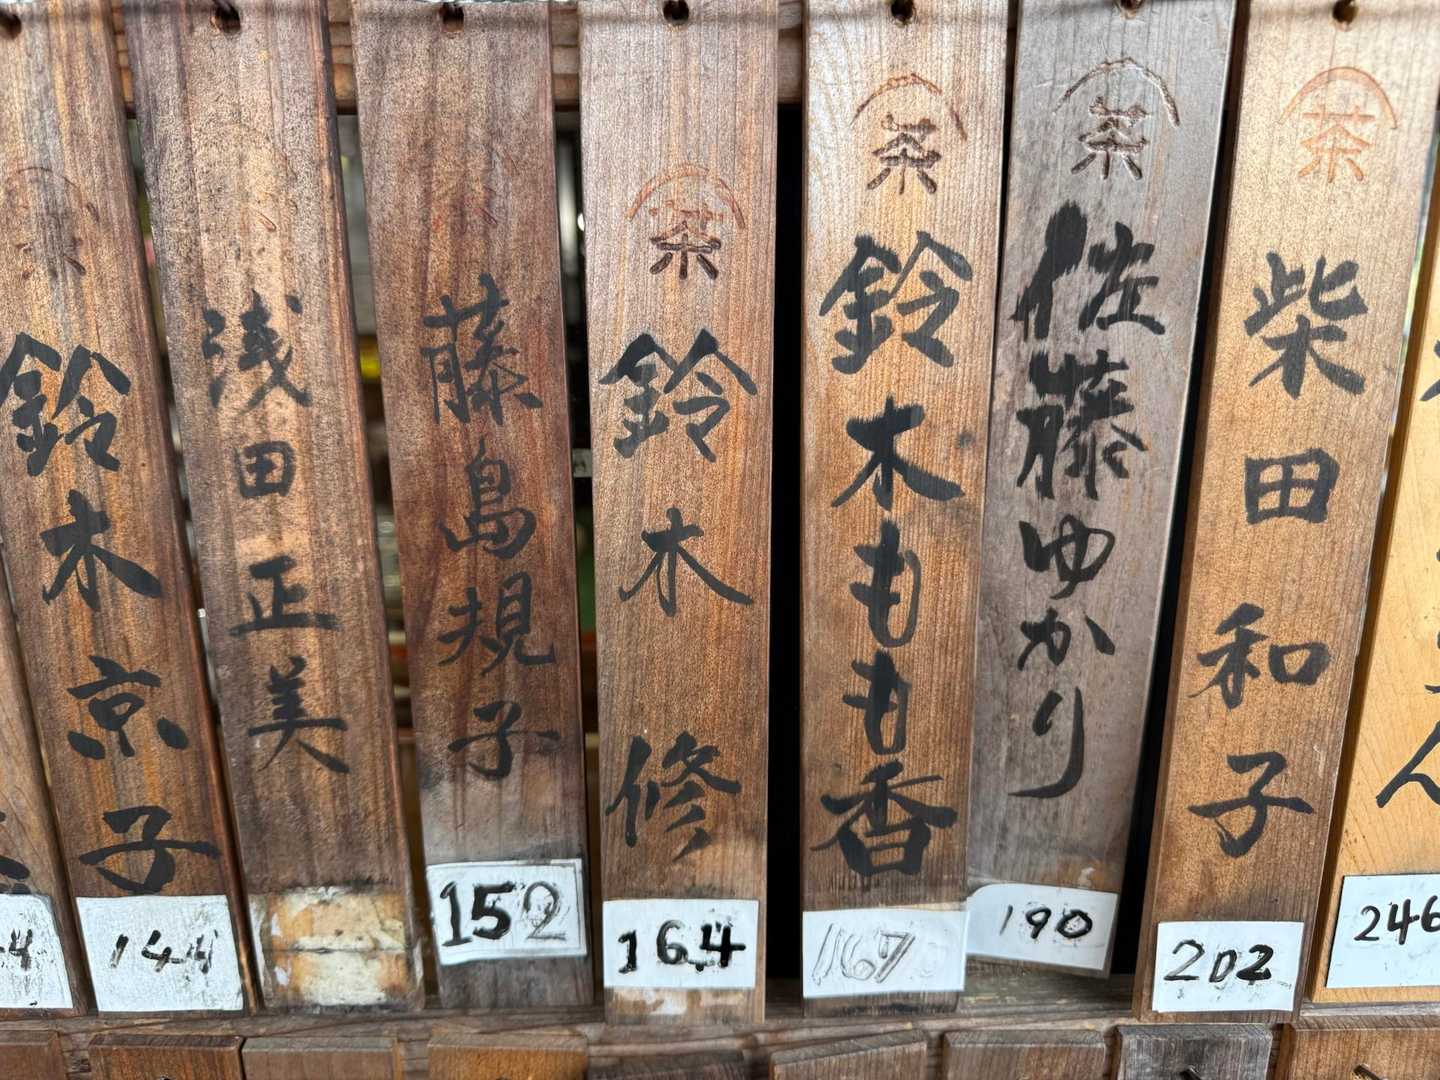 茶
鈴木京子
144
浅田正美
藤島規子
152
茶
鈴木修
164
茶
鈴木もも香
167
茶
佐藤ゆかり
190
茶
柴田和子
202
246